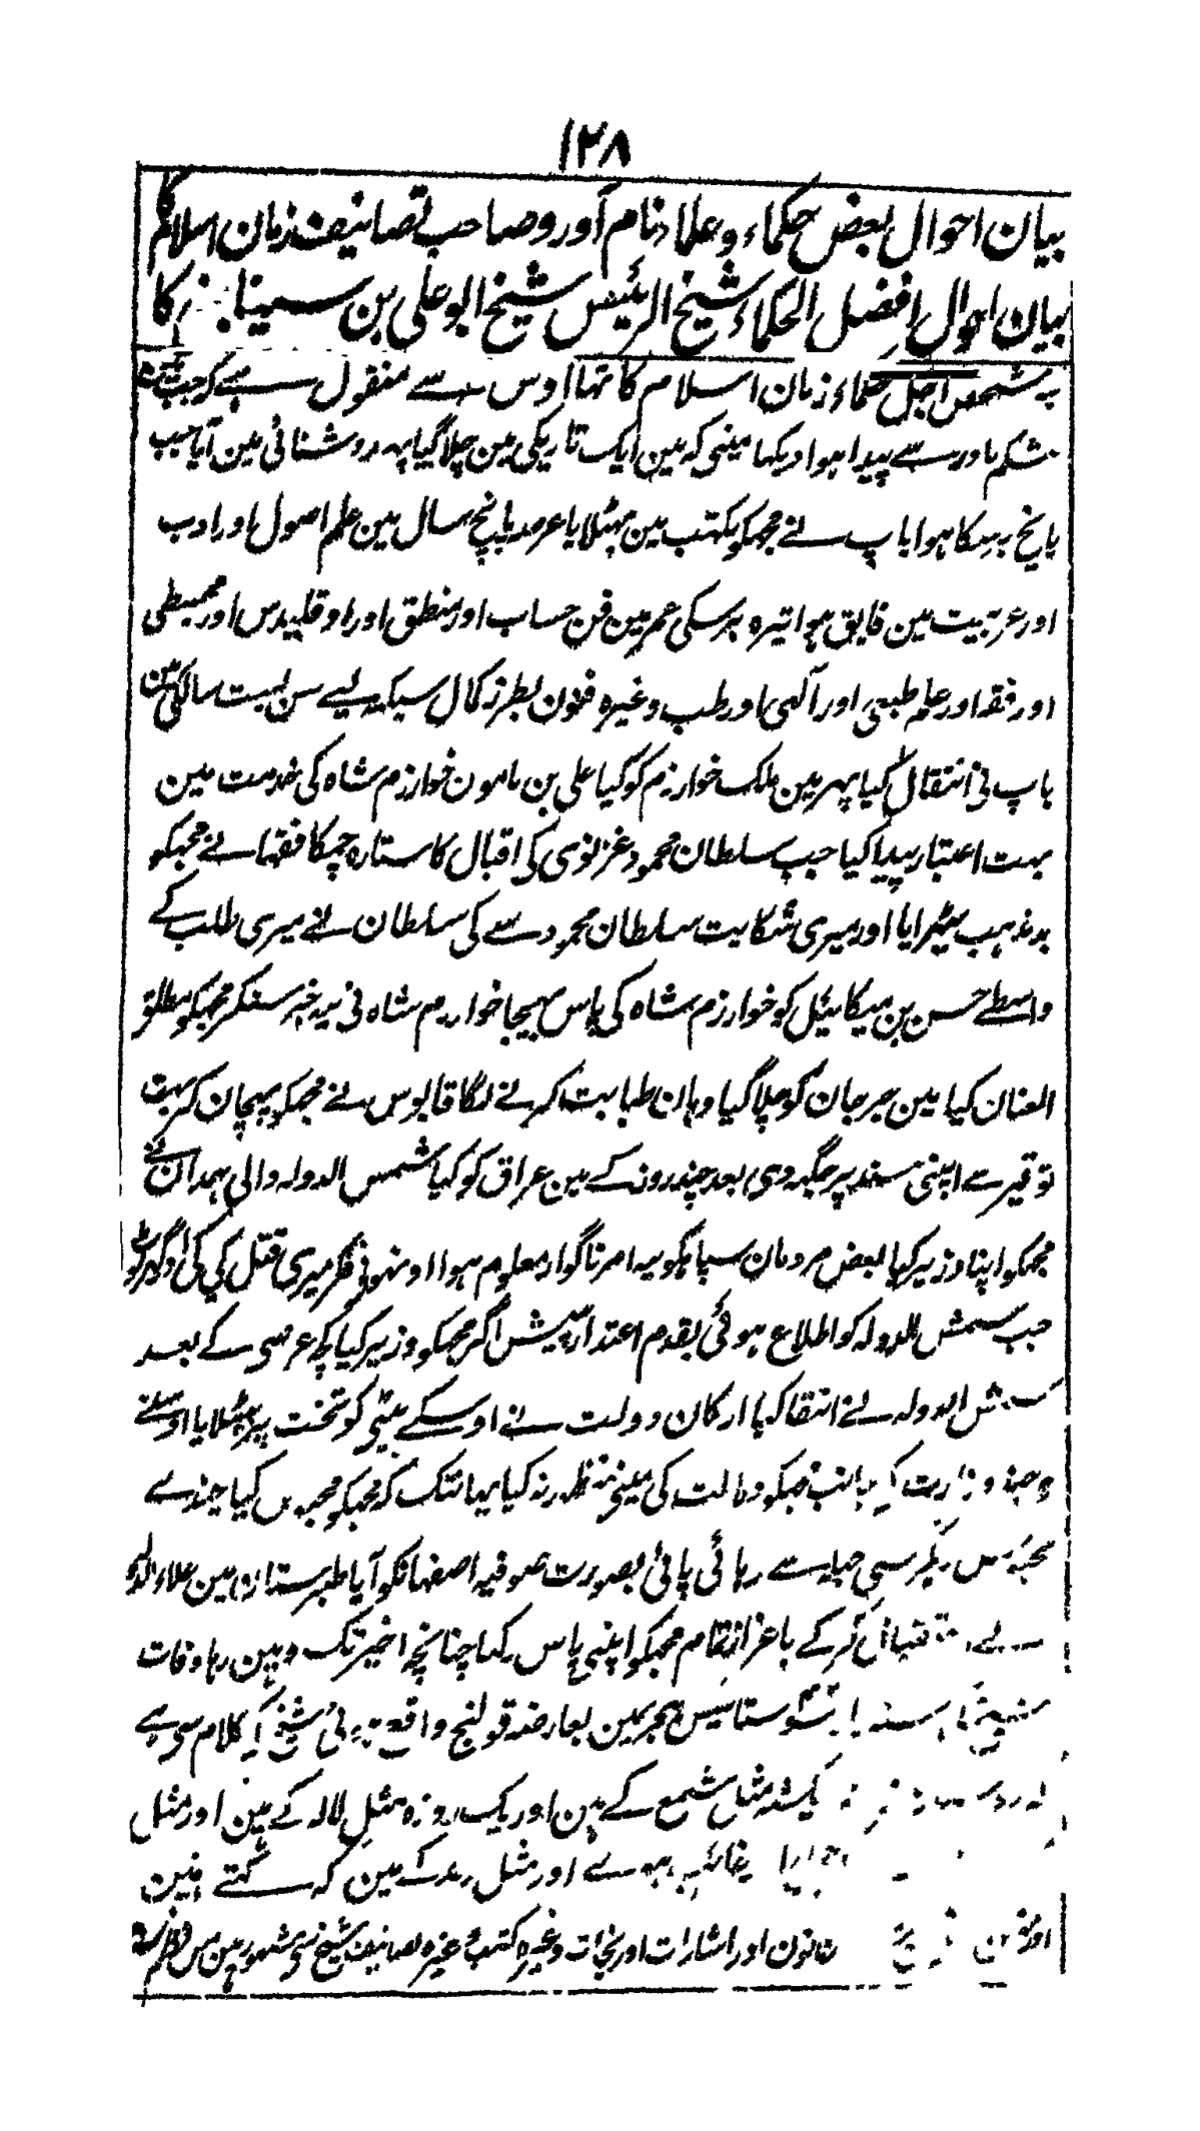 ۱۲۸
بیان احوال بعض حکماء و علماء نام آور و صاحب تصانیف زمان اسلام کا
بیان احوال افضل الحکماء شیخ الرئیس شیخ ابو علی بن سینا کا
یہ شخص اجل حکماء زمان اسلام کا تھا اوس سے منقول ہے کہ جب میں
شکم مادر سے پیدا ہوا دیکھا مینی کہ مین ایک تاریکی مین چلا گیا پہر روشنائی مین آیا جب
پانچ برسکا ہوا باپ نے مجہکو مکتب مین بہٹلایا عرصہ پانچ سال مین علم اصول اور ادب
اور عربیت مین فایق ہوا تیرہ برسکی عمر مین فن حساب اور منطق اور اوقلیدس اور مجسطی
اور فقہ اور علم طبعی اور آلہی اور طب وغیرہ فنون بطرز کمال سیکہ لیے سن بست سالگی مین
باپ نی انتقال کیا پہر مین ملک خوارزم کو گیا علی بن مامون خوارزم شاہ کی خدمت مین
بہت اعتبار پیدا کیا جب سلطان محمود غزنوی کی اقبال کا ستارہ چمکا فقہا نے مجہکو
بد مذہب ٹہرایا اور میری شکایت سلطان محمود سے کی سلطان نے میری طلب کے
واسطے حسن بن میکائیل کو خوارزم شاہ کی پاس بہیجا خوارزم شاہ نی یہ خبر سنکر مجہکو مطلق
العنان کیا مین جرجان کو چلا گیا وہان طبابت کرنے لگا قابوس نے مجہکو پہچان کر بہت
توقیر سے اپنی مسند پر جگہ دی بعد چند روز کے مین عراق کو گیا شمس الدولہ والی ہمدان نے
مجہکو اپنا وزیر کیا بعض مردمان سپاہ کو یہ امر ناگوار معلوم ہوا اونہونی فکر میری قتل کی کی
جب شمش الدولہ کو اطلاع ہوئی بقدم اعتذار پیش آکر مجہکو وزیر کیا کچہ عرصی کے بعد
شمش الدولہ نے انتقال کیا ارکان دولت نے اوسکے بیٹی کو تخت پر بہٹلایا اوسنے
ہر چند وزارت کی جانب مجہکو دلالت کی مینی منظور نہ کیا یہانتک کہ مجہکو محبوس کیا چندے
محبوس رہکر کسی حیلہ سے رہائی پائی بصورت صوفیہ اصفہانکو آیا طبرستان مین علاء الدولہ
نے استقبال کرکے باعزاز تمام مجہکو اپنی پاس رکہا چنانچہ اخیر تک وہین رہا وفات
شیخ کی سنہ چار سو ستائیس ہجری مین بعارضہ قولنج واقع ہوئی شیخ کی کلام سی ہے
کشتہ مثل شمع کے ہین اور یک روزہ مثل لالہ کے ہین اور مثل
بے فائدہ ہوے اور مثل رعد کے مین کہ کہتے ہین
قانون اور اشارات اور نجات وغیرہ کتب تصانیف شیخ سی مشہور ہین